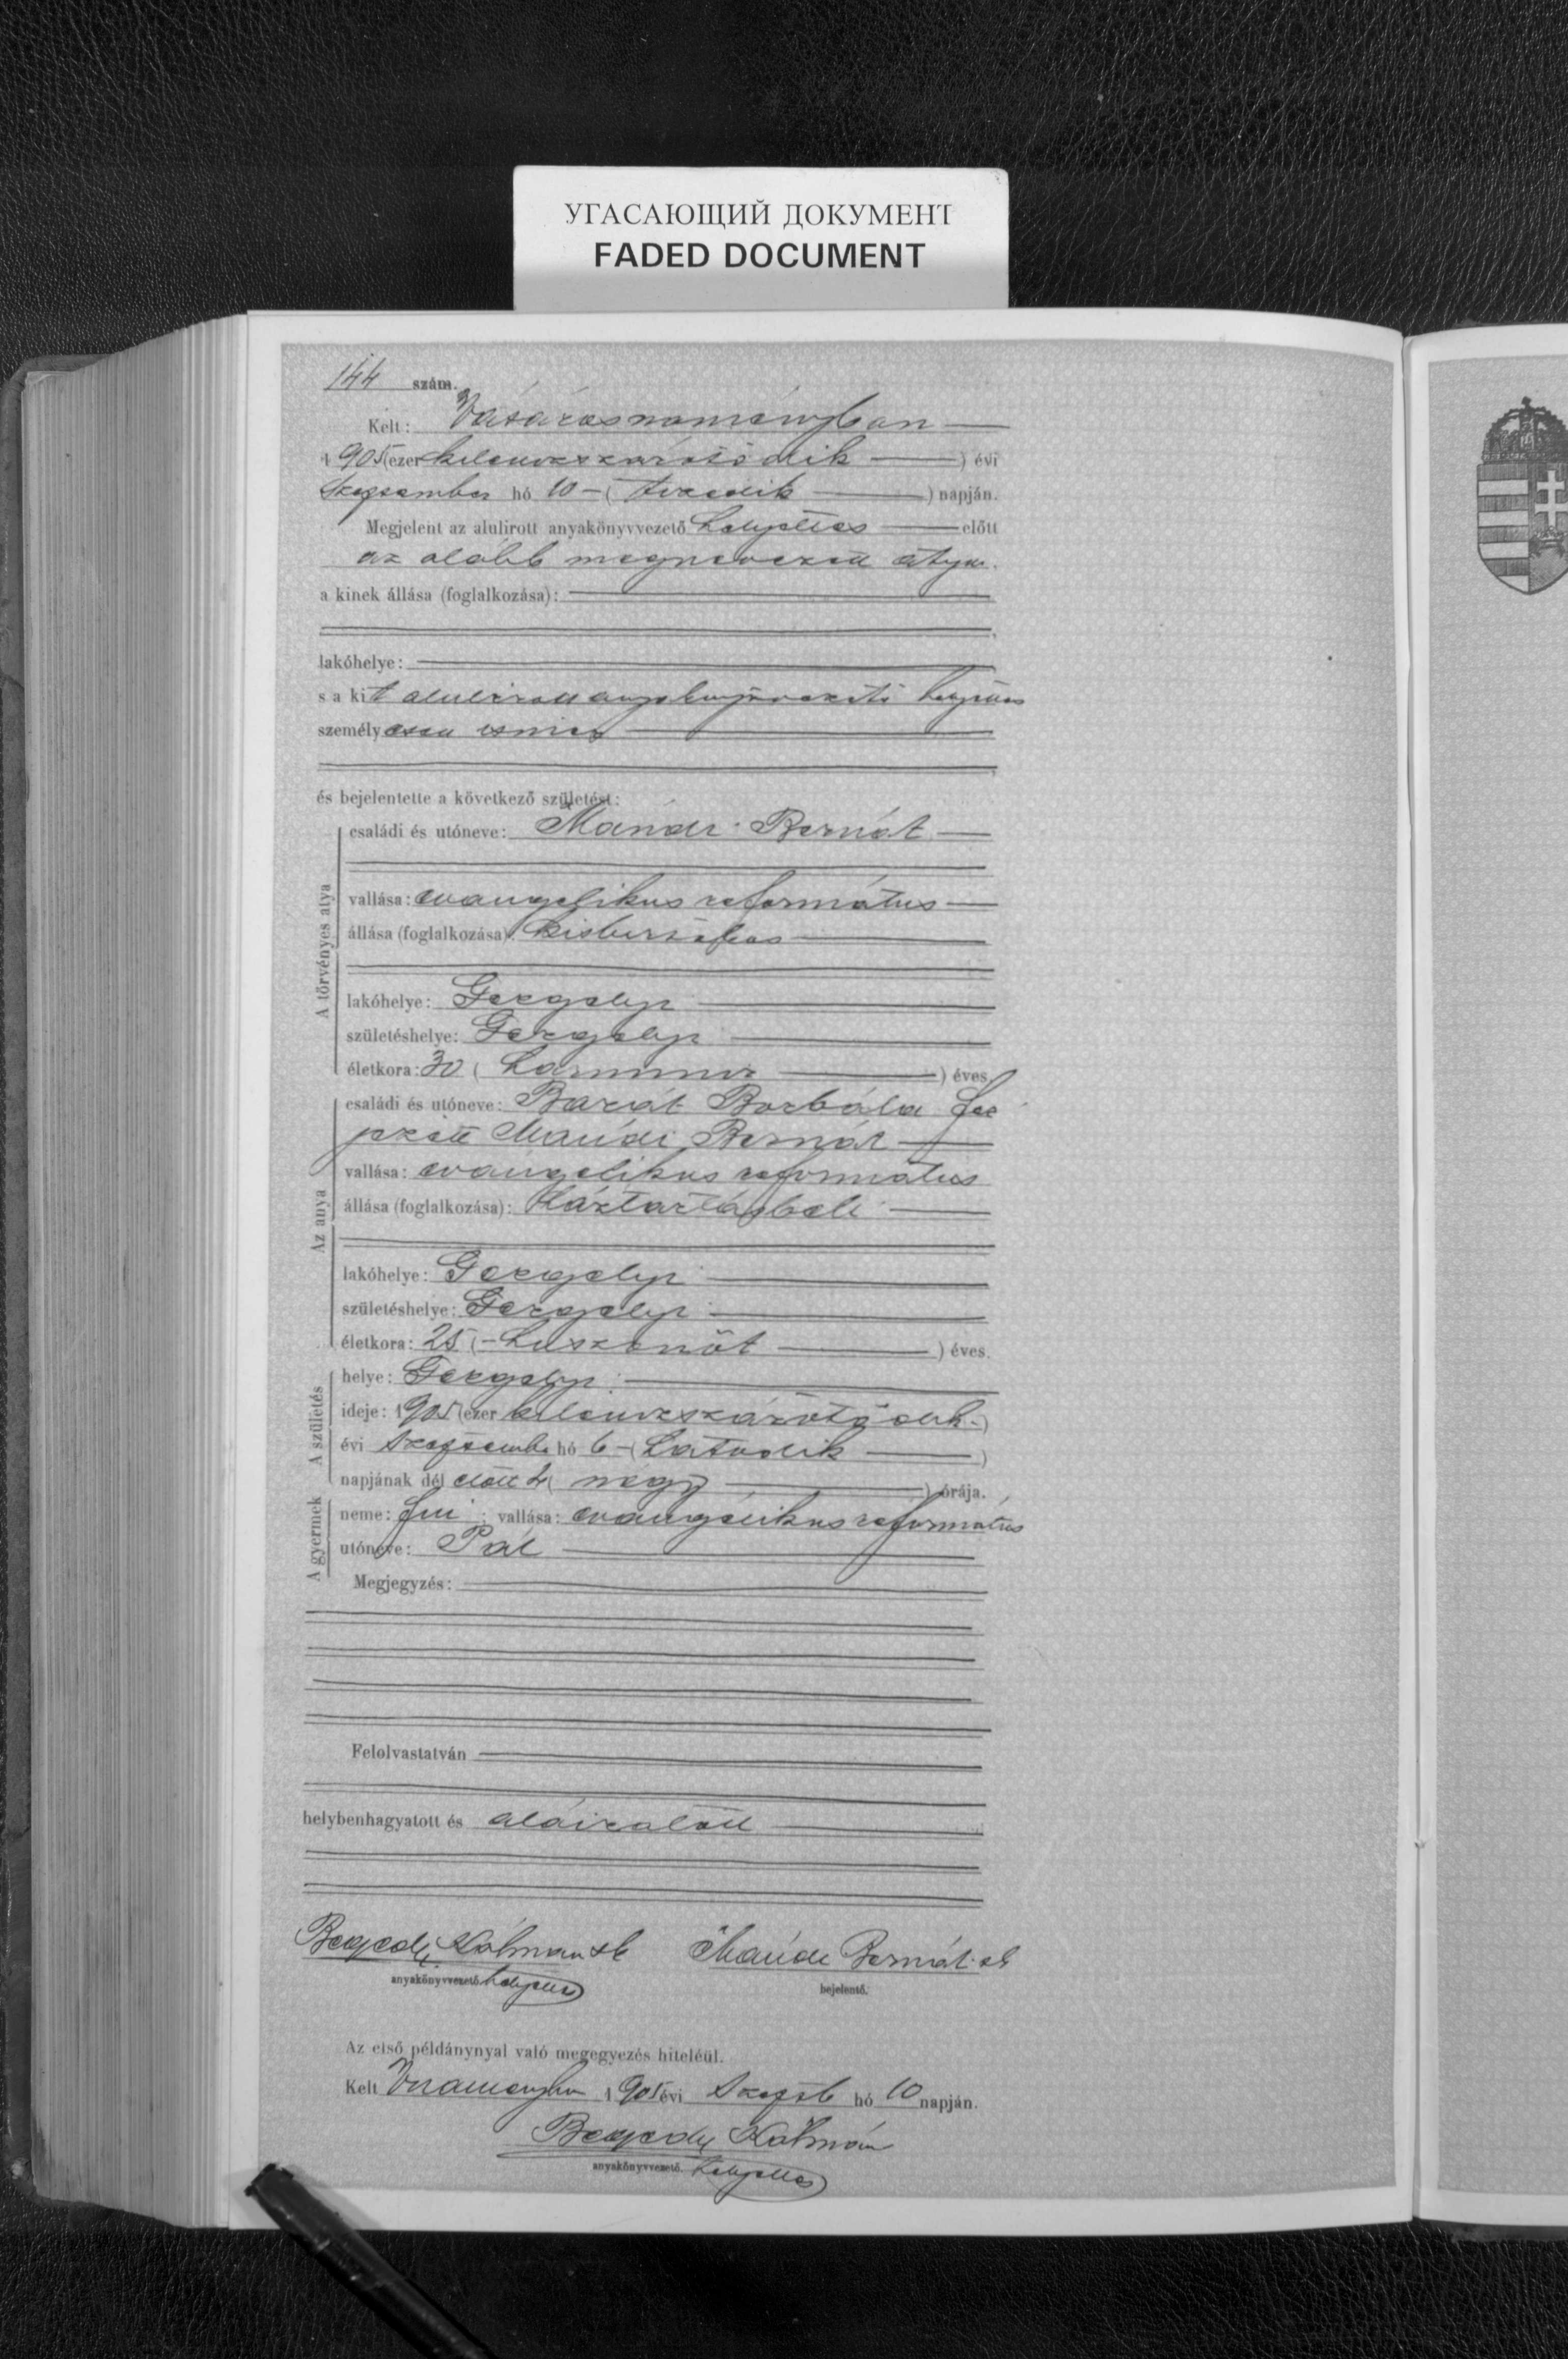 УГАСАЮЩИЙ ДОКУМЕНТ
FADED DOCUMENT
144 szám.
Kelt: Vásárosnaményban
1905 (ezerkilenczszázötödik) évi
Szeptember hó 10 (tizedik) napján.
Megjelent az alulirott anyakönyvvezető helyettes előtt
az alább megnevezett atya
a kinek állása (foglalkozása):
lakóhelye:
s a kit alulirott anyakönyvvezető helyettes
személyesen ismer
és bejelentette a következő születést:
A törvényes atya
családi és utóneve: Mándi Bernát
vallása: evangelikus református
állása (foglalkozása): kisbirtokos
lakóhelye: Gergelyi
születéshelye: Gergelyi
életkora: 30 (harmincz) éves.
Az anya
családi és utóneve: Barát Borbála fér
jezett Mándi Bernát
vallása: evangelikus református
állása (foglalkozása): háztartásbeli
lakóhelye: Gergelyi
születéshelye: Gergelyi
életkora: 25 (huszonöt) éves.
A születés
helye: Gergelyi
ideje: 1905 (ezer kilenczszázötödik)
évi Szeptember hó 6 (hatodik)
napjának dél előtt 4 (négy) órája.
A gyermek
neme: fiu; vallása: evangelikus református
utóneve: Pál
Megjegyzés:
Felolvastatván
helybenhagyatott és aláiratott
Begedy Kálmán sk Mándi Bernát sk
anyakönyvvezető helyettes bejelentő.
Az első példánynyal való megegyezés hiteléül.
Kelt Vnaményban 1905 évi Szeptb hó 10 napján.
Begedy Kálmán
anyakönyvvezető. helyettes